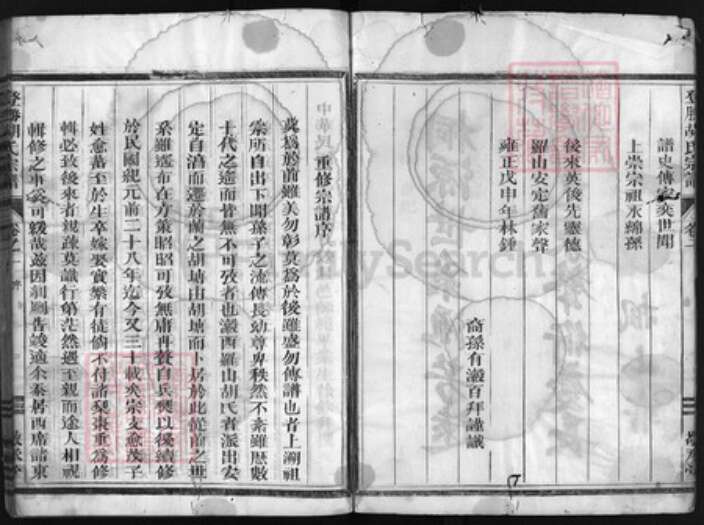 登勝胡氏宗譜
卷二
譜史傳家奕世聞
上崇宗祖永綿孫
後來英俊先靈德
羅山安定舊家聲
雍正戊申年林鍾
裔孫有澱百拜謹識
重修宗譜序
莫為於前雖美勿彰莫為於後雖盛勿傳譜也者上溯祖
宗所自出下開孫子之流傳長幼尊卑秩然不紊雖歷數
十代之遙而皆無不可攷者也澱西羅山胡氏者派出安
定自
而遷於蘭之胡塘由胡塘而卜居於此從前之
系雖遙布在方策昭昭可攷無庸再贅自兵燹以後續修
於民國紀元前二十八年迄今又三十載矣宗支愈茂子
姓愈蕃至於生卒嫁娶實繁有徒倘不付諸梨棗重為修
輯必致後來者親疎莫識行第茫然遇至親而途人相視
輯修之事奚可緩哉茲因剞劂告竣適余忝居西席諸東
FamilySearch